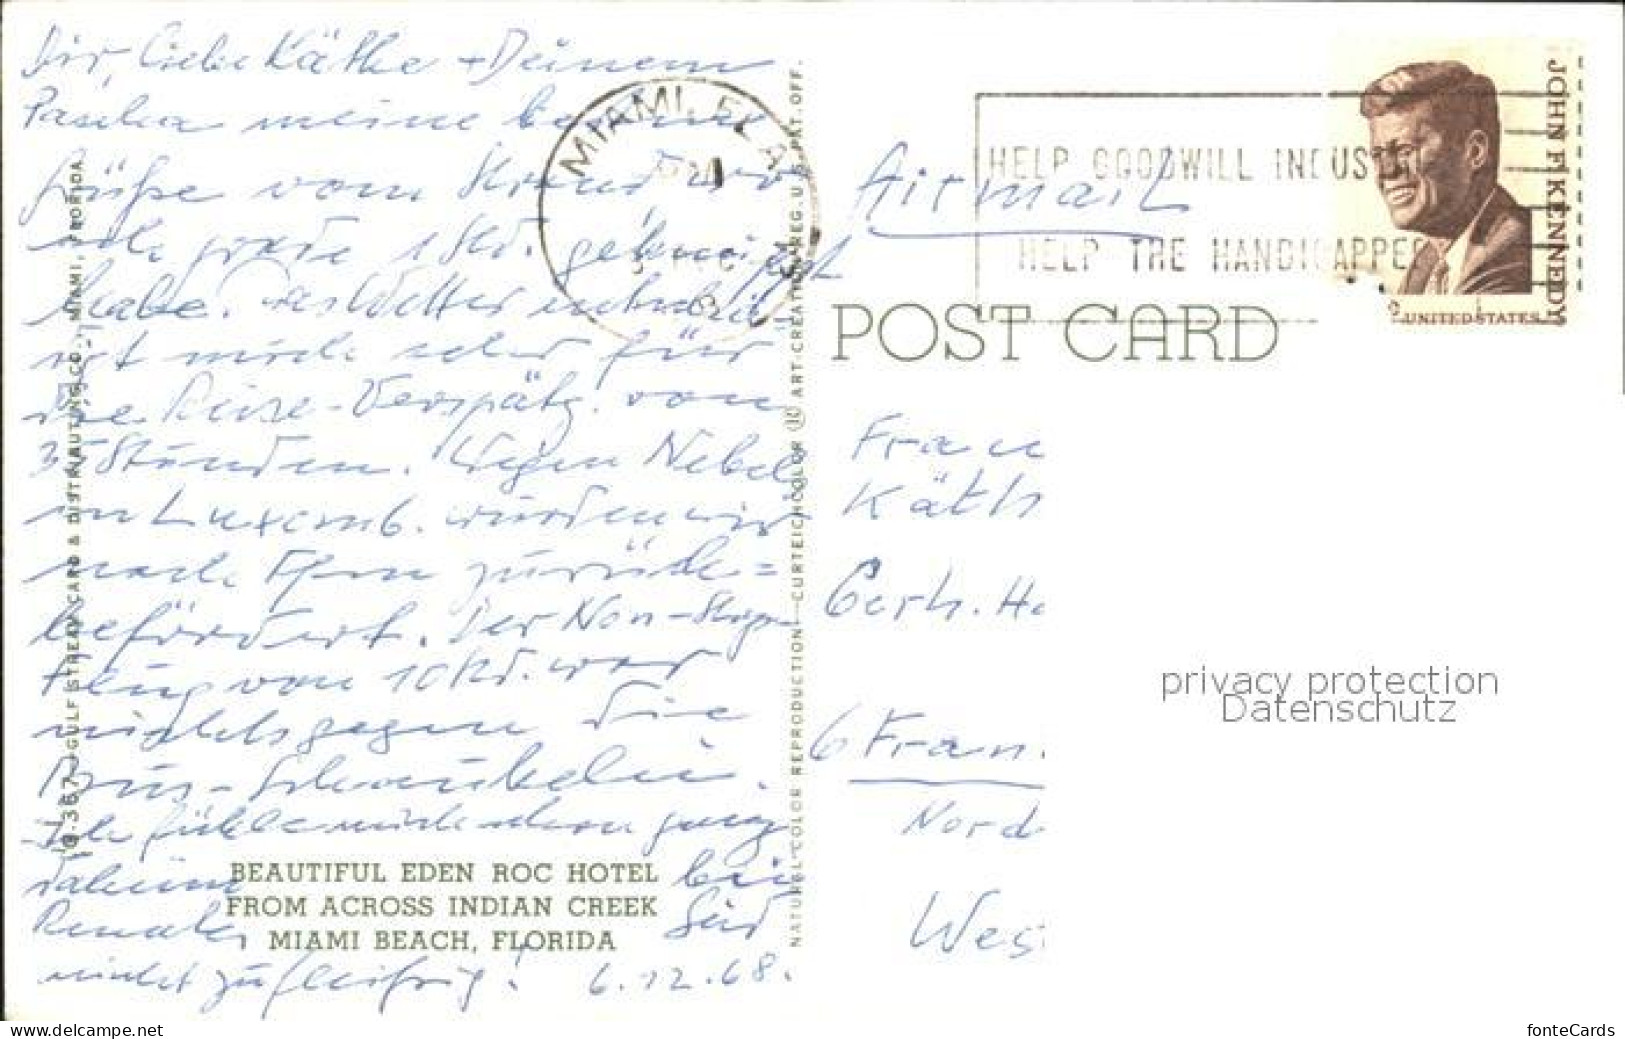 Dir, liebe Käthe + Deinem
Pascha meine besten
Grüße vom Strand wo
ich grade 1 Std. gebräunt
habe. Das Wetter entschädigt
mich sehr für
die Reise-Verspätg. von
35 Stunden. Wegen Nebel
in Luxemb. wurden wir
nach Ffm zurück=
befördert. Der Non-Stop
Flug von 10 Std. war
nichts gegen die
Bus-Schaukelei.
Ich fühle mich schon ganz
daheim bei
Renate. Seid
nicht zu fleißig! 6.12.68.
BEAUTIFUL EDEN ROC HOTEL
FROM ACROSS INDIAN CREEK
MIAMI BEACH, FLORIDA
GULF STREAM CARD & DISTRIBUTING CO., MIAMI, FLORIDA
NATURAL COLOR REPRODUCTION—CURTEICHCOLOR ® ART-CREATION REG. U.S. PAT. OFF.
MIAMI, FLA.
HELP GOODWILL INDUS
HELP THE HANDICAPPED
JOHN F. KENNEDY
UNITED STATES
Airmail
POST CARD
Frau
Käth
Gerh. Ha
6 Fran
Nord
West
privacy protection
Datenschutz
www.delcampe.net
fonteCards